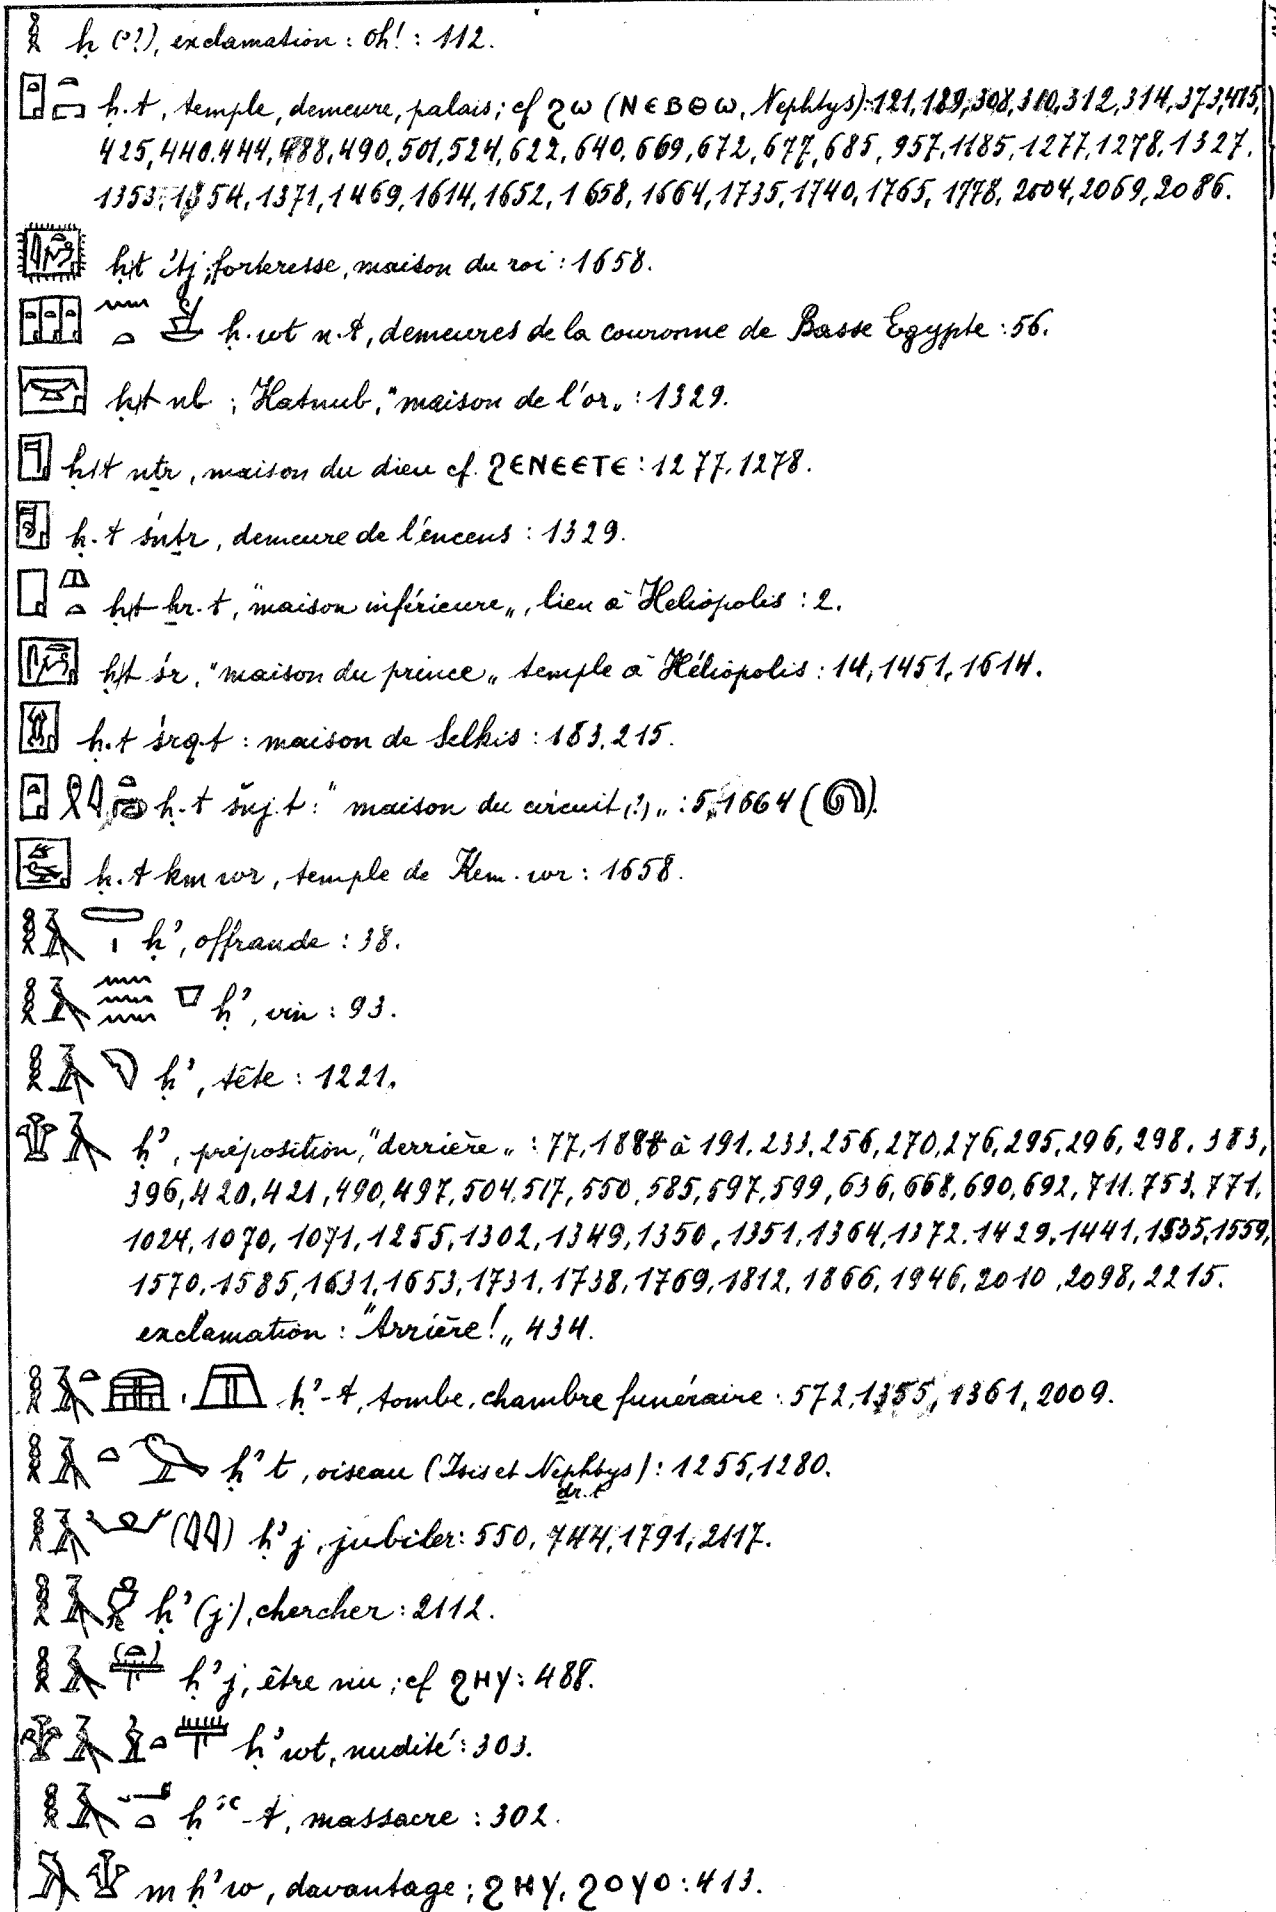 ḥ (ꜣ?), exclamation : oh! : 112.
ḥ.t, temple, demeure, palais; cf ϩω (ΝЄΒΘω, Nephtys): 121, 189, 308, 310, 312, 314, 373, 415,
425, 440. 444, 488, 490, 501, 524, 622, 640, 669, 672, 677, 685, 957. 1185, 1277, 1278. 1327.
1353, 1354, 1371, 1469, 1614, 1652, 1658, 1664, 1735, 1740, 1765, 1778, 2004, 2069, 2086.
ḥ.t ꞽtj ; forteresse, maison du roi : 1658.
ḥ.wt n.t, demeures de la couronne de Basse Egypte : 56.
ḥ.t nb ; Hatnub, "maison de l'or„ : 1329.
ḥ.t nṯr, maison du dieu cf. ϩЄΝЄЄΤЄ : 1277, 1278.
ḥ.t śnṯr, demeure de l'encens : 1329.
ḥ.t ẖr.t, "maison inférieure„, lieu à Heliopolis : 2.
ḥ.t śr, "maison du prince„ temple à Héliopolis : 14, 1451, 1614.
ḥ.t śrq.t : maison de Selkis : 183, 215.
ḥ.t šnj.t : "maison du circuit (?)„ : 5, 1664 ( ).
ḥ.t km wr, temple de Kem-wr : 1658.
ḥꜣ, offrande : 38.
ḥꜣ, vin : 93.
ḥꜣ, tête : 1221.
ḥꜣ, préposition, "derrière„ : 77, 188 à 191. 233, 256, 270, 276, 295, 296, 298. 383,
396, 420, 421, 490, 497, 504, 517, 550, 585, 597, 599, 636, 668, 690, 692, 711. 753, 771,
1024, 1070, 1071, 1255, 1302, 1349, 1350, 1351, 1364, 1372. 1429, 1441, 1535, 1559,
1570, 1585, 1631, 1653, 1731, 1738, 1769, 1812, 1866, 1946, 2010, 2098, 2215.
exclamation : "Arrière!„ 434.
ḥꜣ-t, tombe, chambre funéraire : 572, 1355, 1361, 2009.
ḥꜣt, oiseau (Isis et Nephtys) : 1255, 1280.
ḏr.t
ḥꜣj, jubiler : 550, 744, 1791, 2117.
ḥꜣ(j), chercher : 2112.
ḥꜣj, être nu ; cf ϩΗΥ : 488.
ḥꜣwt, nudité : 303.
ḥꜣꜥ-t, massacre : 302.
m ḥꜣw, davantage ; ϩΗΥ, ϩΟΥΟ : 413.